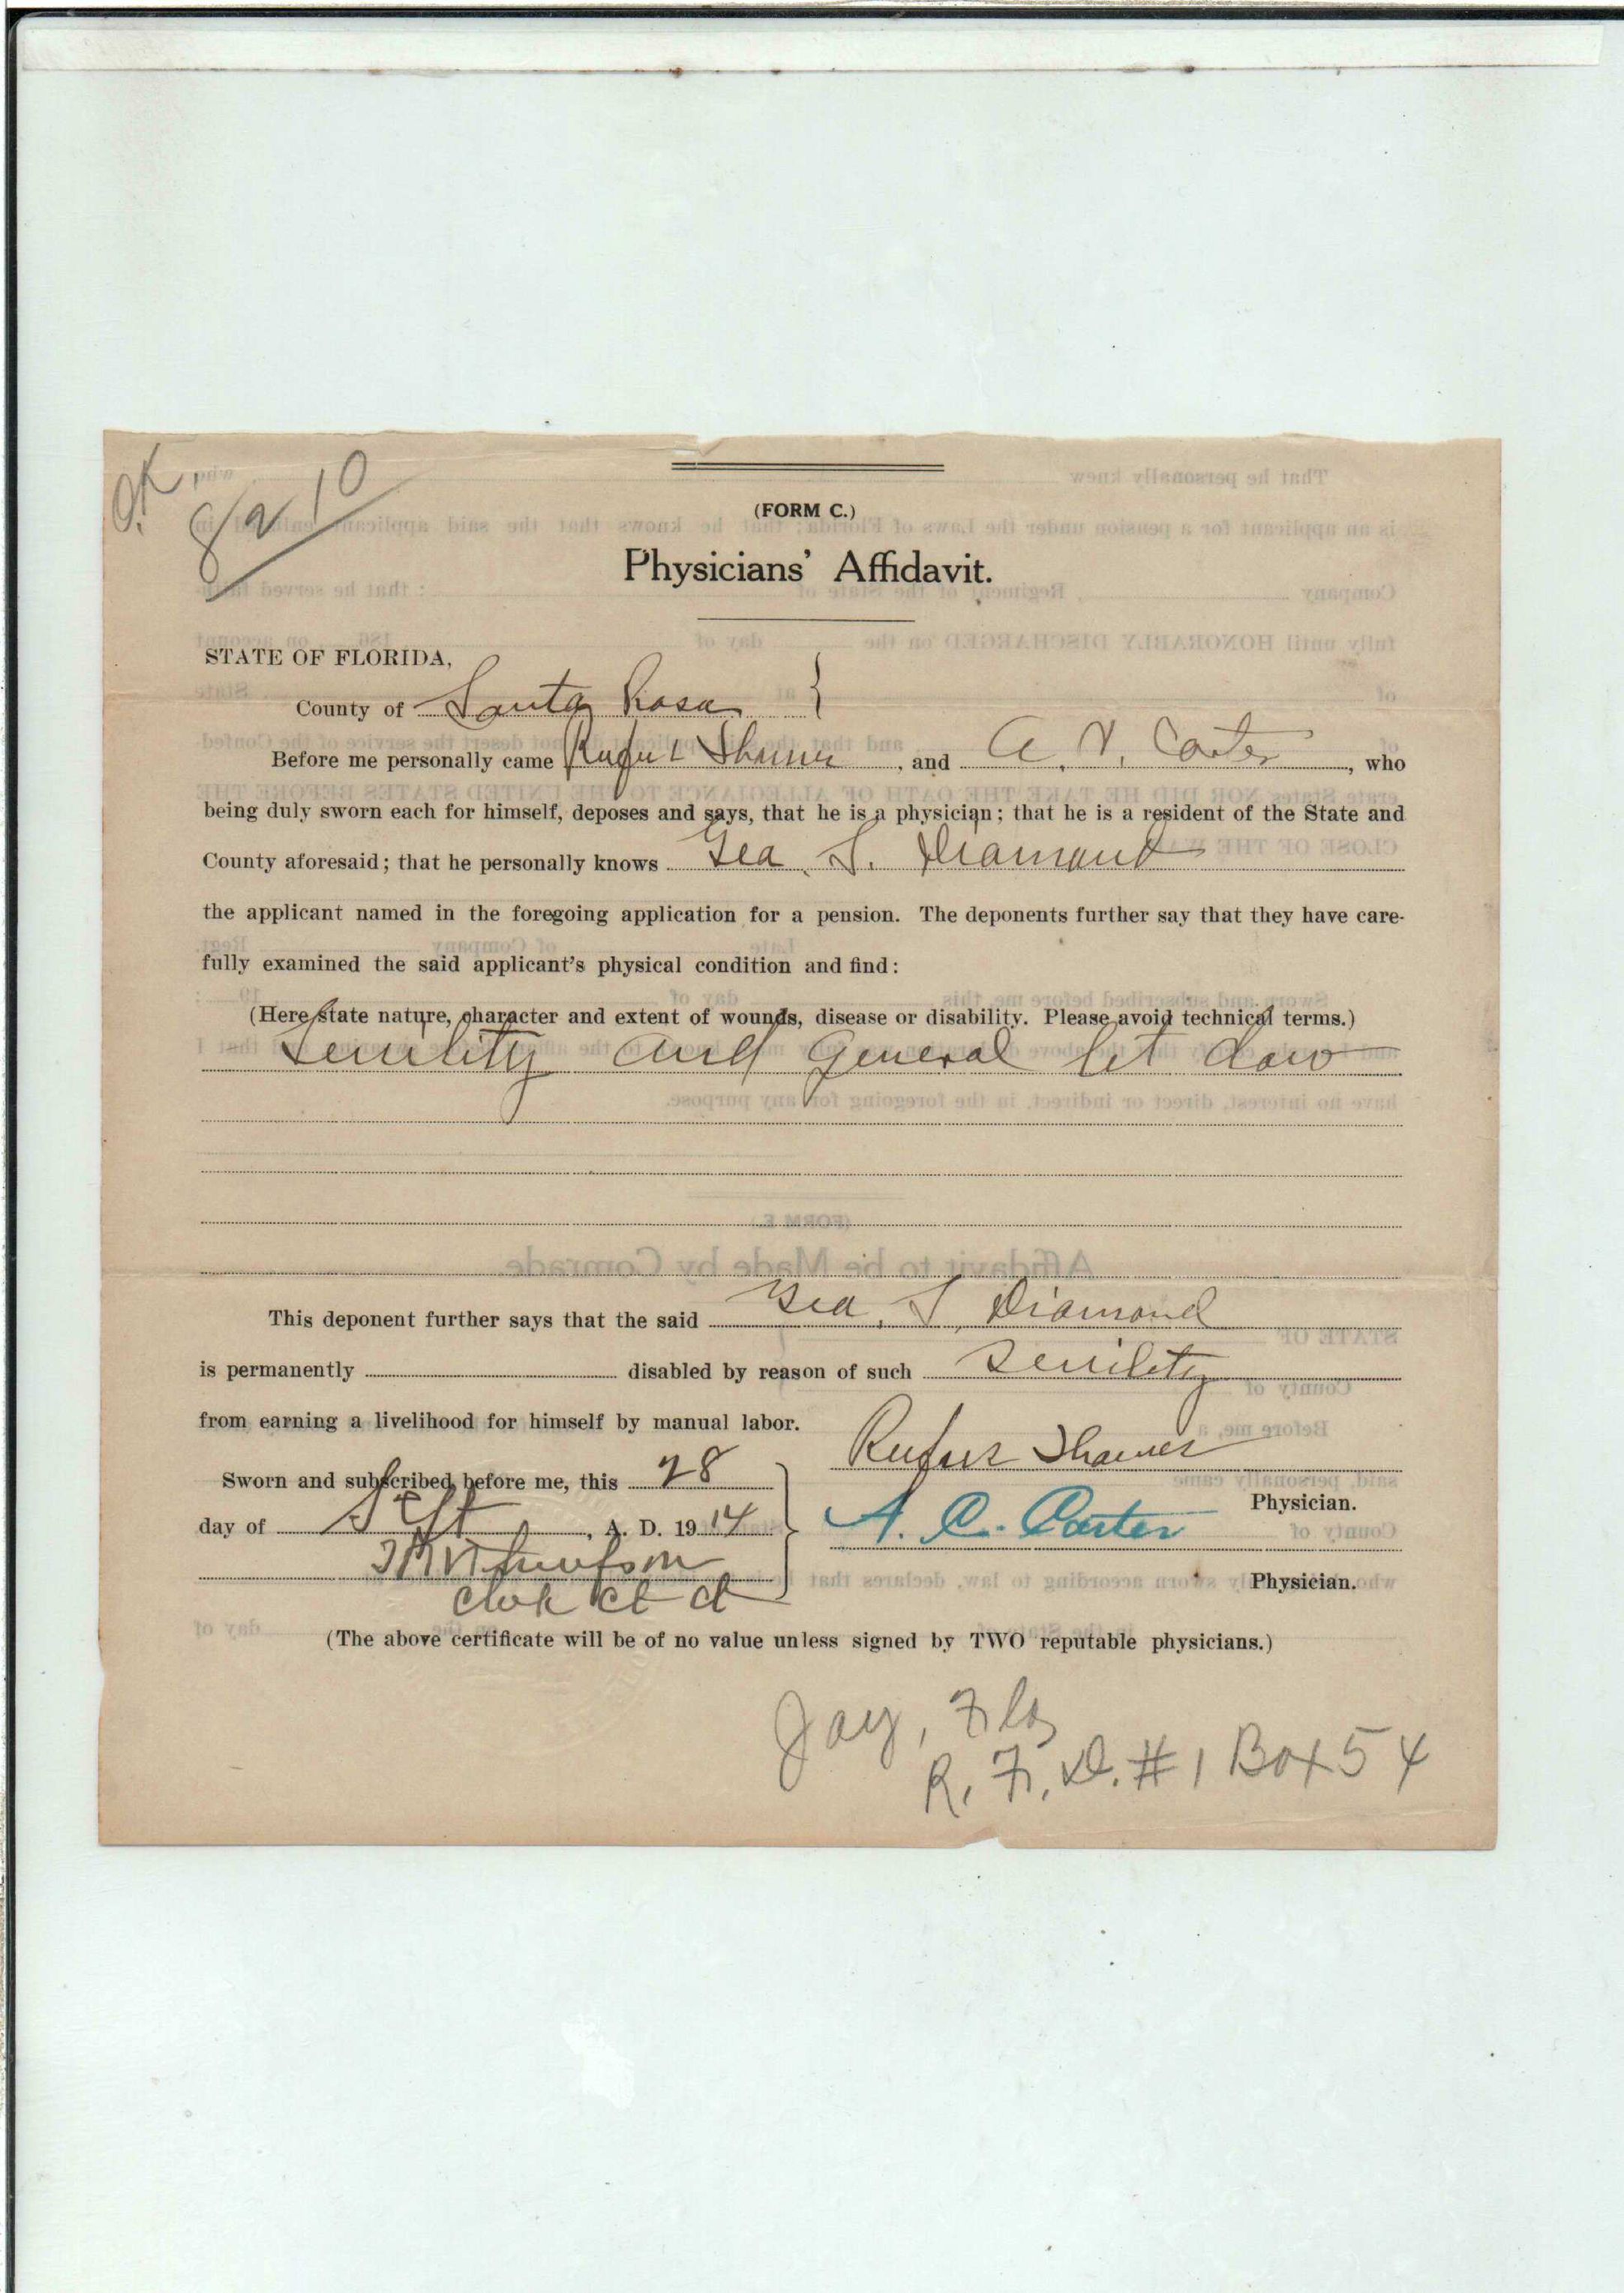 O.K.
(FORM C.)
Physicians' Affidavit.
STATE OF FLORIDA,
County of Santa Rosa }
Before me personally came Rufus Thames, and A. C. Carter, who
being duly sworn each for himself, deposes and says, that he is a physician; that he is a resident of the State and
County aforesaid; that he personally knows Geo. S. Diamond
the applicant named in the foregoing application for a pension. The deponents further say that they have care-
fully examined the said applicant's physical condition and find:
(Here state nature, character and extent of wounds, disease or disability. Please avoid technical terms.)
Senility and General let dow
This deponent further says that the said Geo. S. Diamond
is permanently disabled by reason of such Senility
from earning a livelihood for himself by manual labor.
Rufus Thames
Sworn and subscribed before me, this 28
Physician.
day of Sept, A. D. 1914
A. C. Carter
Clerk Ct Ct
Physician.
(The above certificate will be of no value unless signed by TWO reputable physicians.)
Jay, Fla
R. F. D. #1 Box 54